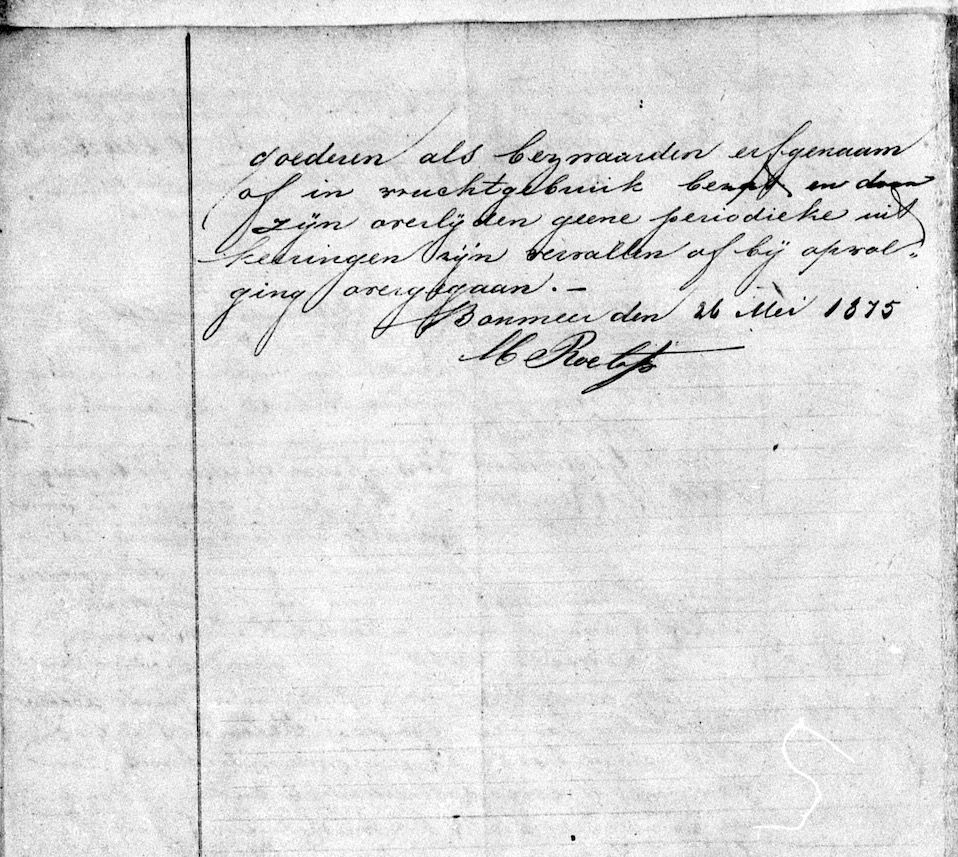 goederen als bezwaarden erfgenaam
of in vruchtgebruik bezat en door
zijn overlijden geene periodieke uit
keeringen zijn vervallen of bij opvol„
ging overgegaan. –
den 26 Mei 1875